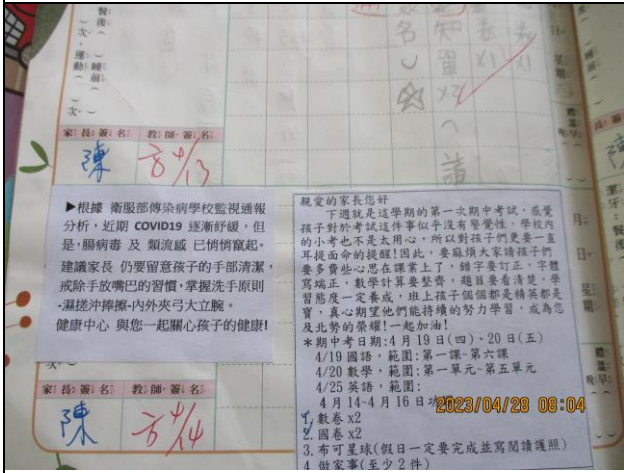 餐後
次、運動
睡前
次
名
知單x2
請
x1
x1
日
星期
體溫
家長簽名
教師簽名
陳
4/13
▶根據 衛服部傳染病學校監視通報
分析，近期 COVID19 逐漸紓緩，但
是，腸病毒 及 類流感 已悄悄竄起。
建議家長 仍要留意孩子的手部清潔，
戒除手放嘴巴的習慣，掌握洗手原則
-濕搓沖捧擦-內外夾弓大立腕。
健康中心 與您一起關心孩子的健康!
家長簽名
教師簽名
陳
4/14
親愛的家長您好
下週就是這學期的第一次期中考試，感覺
孩子對於考試這件事似乎沒有警覺性，學校內
的小考也不是太用心，所以對孩子們更要一直
耳提面命的提醒!因此，要麻煩大家請孩子們
要多費些心思在課業上了，錯字要訂正，字體
寫端正，數學計算要整齊，題目要看清楚，學
習態度一定養成，班上孩子個個都是精英都是
寶，真心期望他們能持續的努力學習，成為您
及北勢的榮耀!一起加油!
*期中考日期:4月19日(四)、20日(五)
4/19 國語，範圍:第一課~第六課
4/20 數學，範圍:第一單元~第五單元
4/25 英語，範圍:
4月14~4月16日
2023/04/28 08:04
1,數卷x2
2.國卷x2
3.布可星球(假日一定要完成並寫閱讀護照)
4.做家事(至少2件)
月
日
星期
體溫
潔牙
餐後
睡前